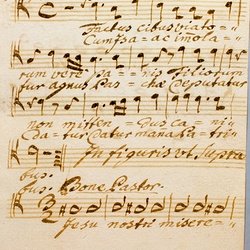 factus cibus viato=
Cum Isa=ac imola=
rum vere pa=nis filiorum
tur agnus Pas=chæ deputatur
non mitten=dus ca=ni=
Da=tur datur manna Pa=tri=
bus. In figuris vt supra
bus. Bone Pastor.
Jesu nostri misere=